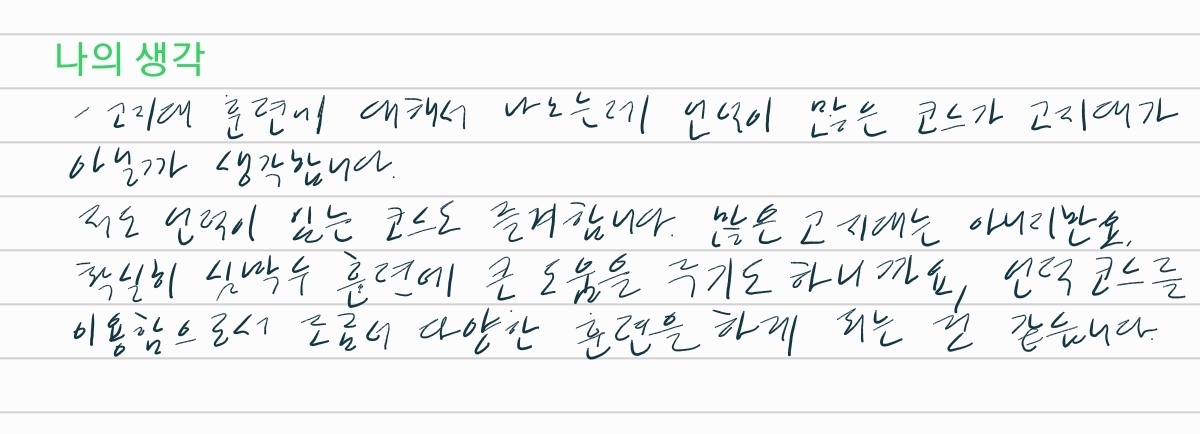 나의 생각
- 고지대 훈련에 대해서 나오는데 언덕이 많은 코스가 고지대가
아닐까 생각합니다.
저도 언덕이 있는 코스도 즐겨합니다. 많은 고지대는 아니지만요.
확실히 심박수 훈련에 큰 도움을 주기도 하니까요, 언덕 코스를
이용함으로서 조금더 다양한 훈련을 하게 되는 것 같습니다.